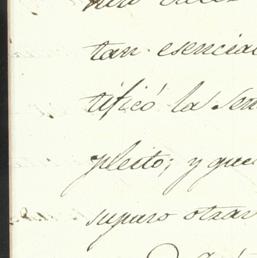 tan esencia
tificó la Sen
pleito; y que
supuso otra